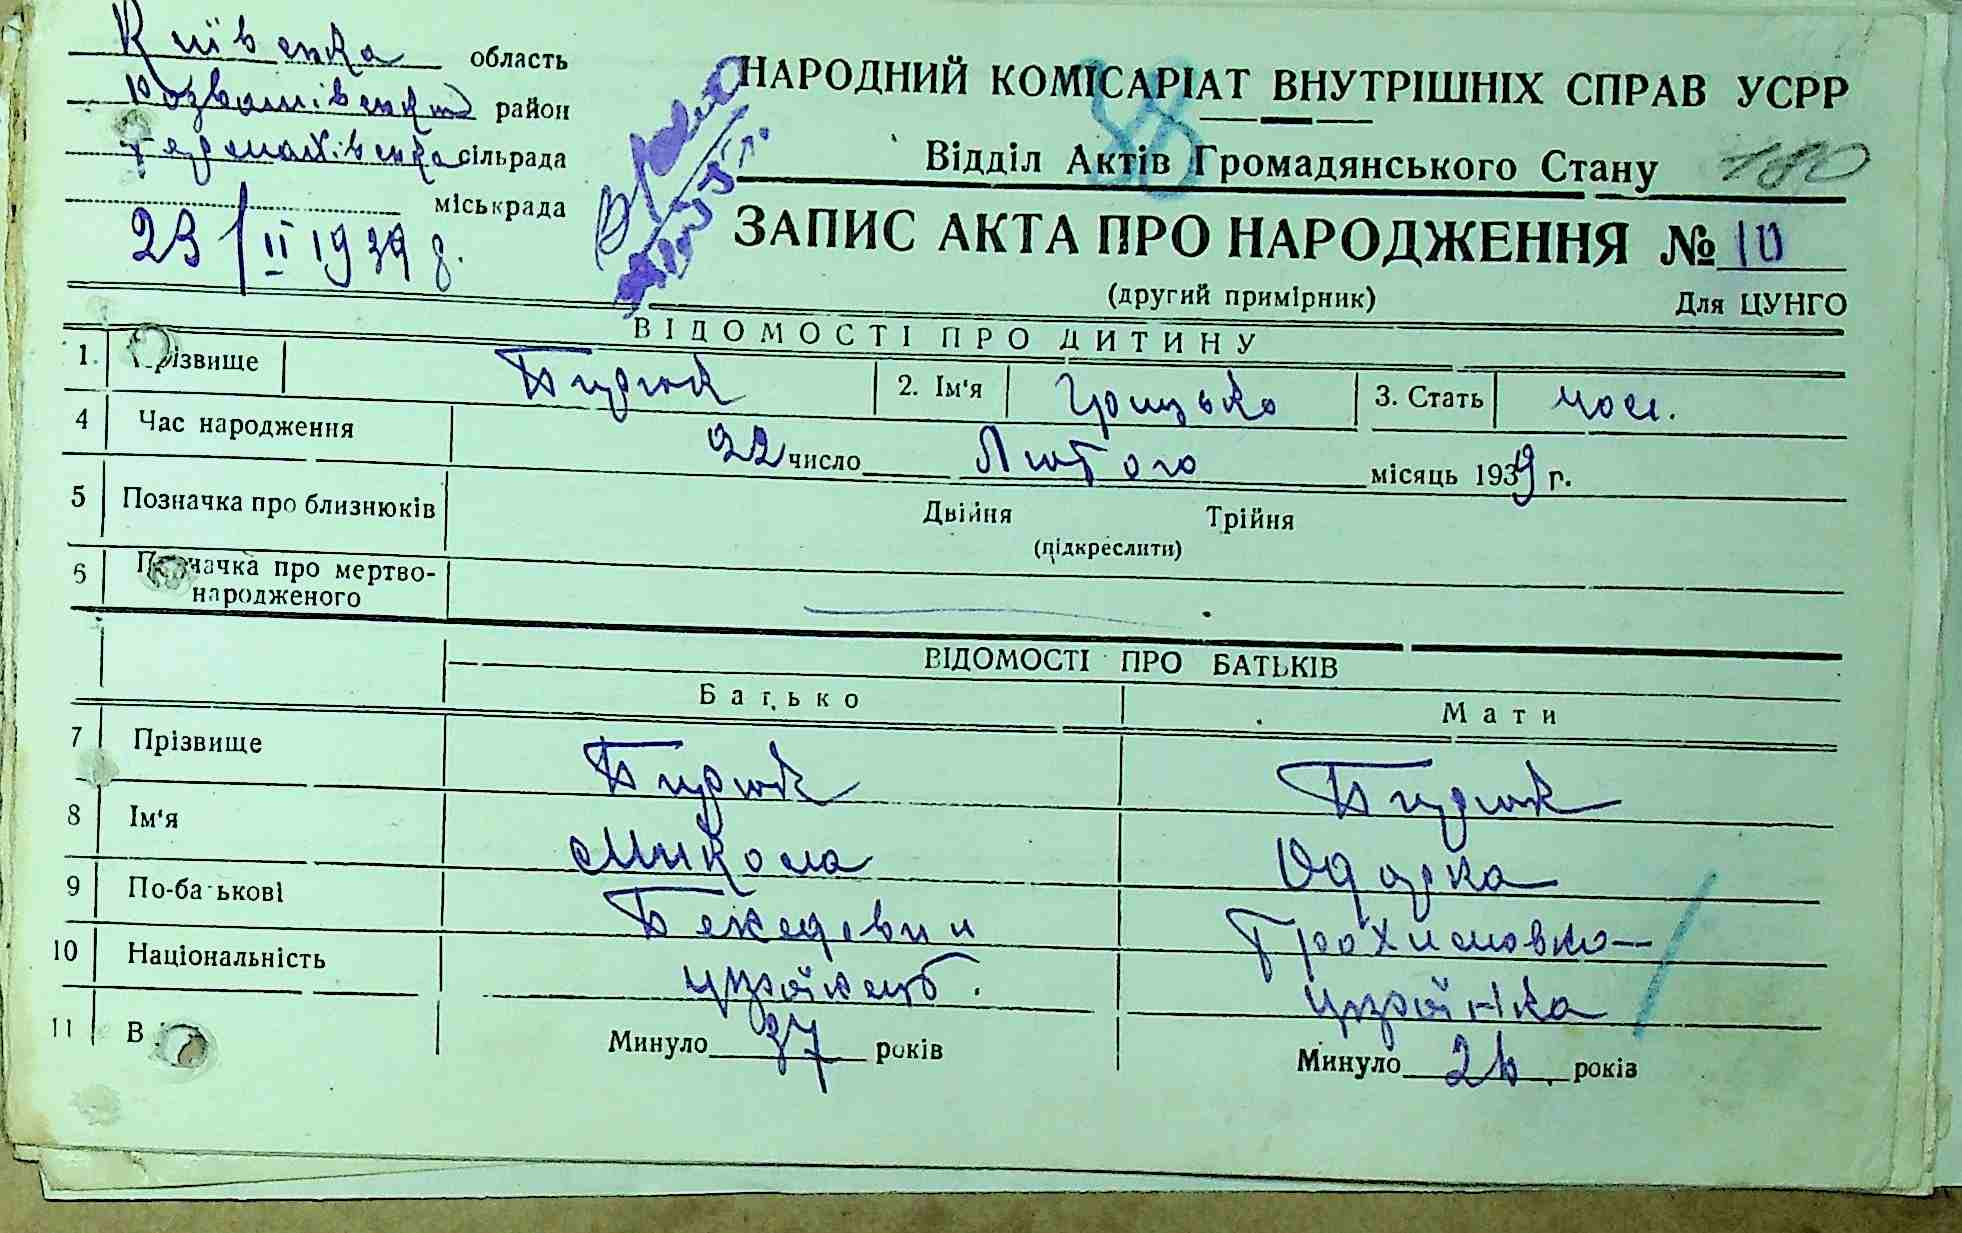 Київська область
Розважівський район
Термахівська сільрада
міськрада
23/II 1939 р.
НАРОДНИЙ КОМІСАРІАТ ВНУТРІШНІХ СПРАВ УСРР
Відділ Актів Громадянського Стану 180
ЗАПИС АКТА ПРО НАРОДЖЕННЯ № 10
(другий примірник) Для ЦУНГО
ВІДОМОСТІ ПРО ДИТИНУ
1. Прізвище Бирюк 2. Ім'я Грицько 3. Стать чол.
4 Час народження 22 число Лютого місяць 1939 г.
5 Позначка про близнюків Двійня Трійня
(підкреслити)
6 Позначка про мертво-
народженого
ВІДОМОСТІ ПРО БАТЬКІВ
Батько Мати
7 Прізвище Бирюк Бирюк
8 Ім'я Микола Одарка
9 По-батькові Трохимовна
10 Національність українець українка
11 В Минуло 37 років Минуло 26 років